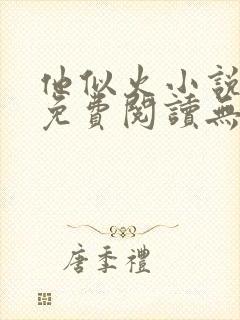 他似火小說
免費閱讀無
唐季禮